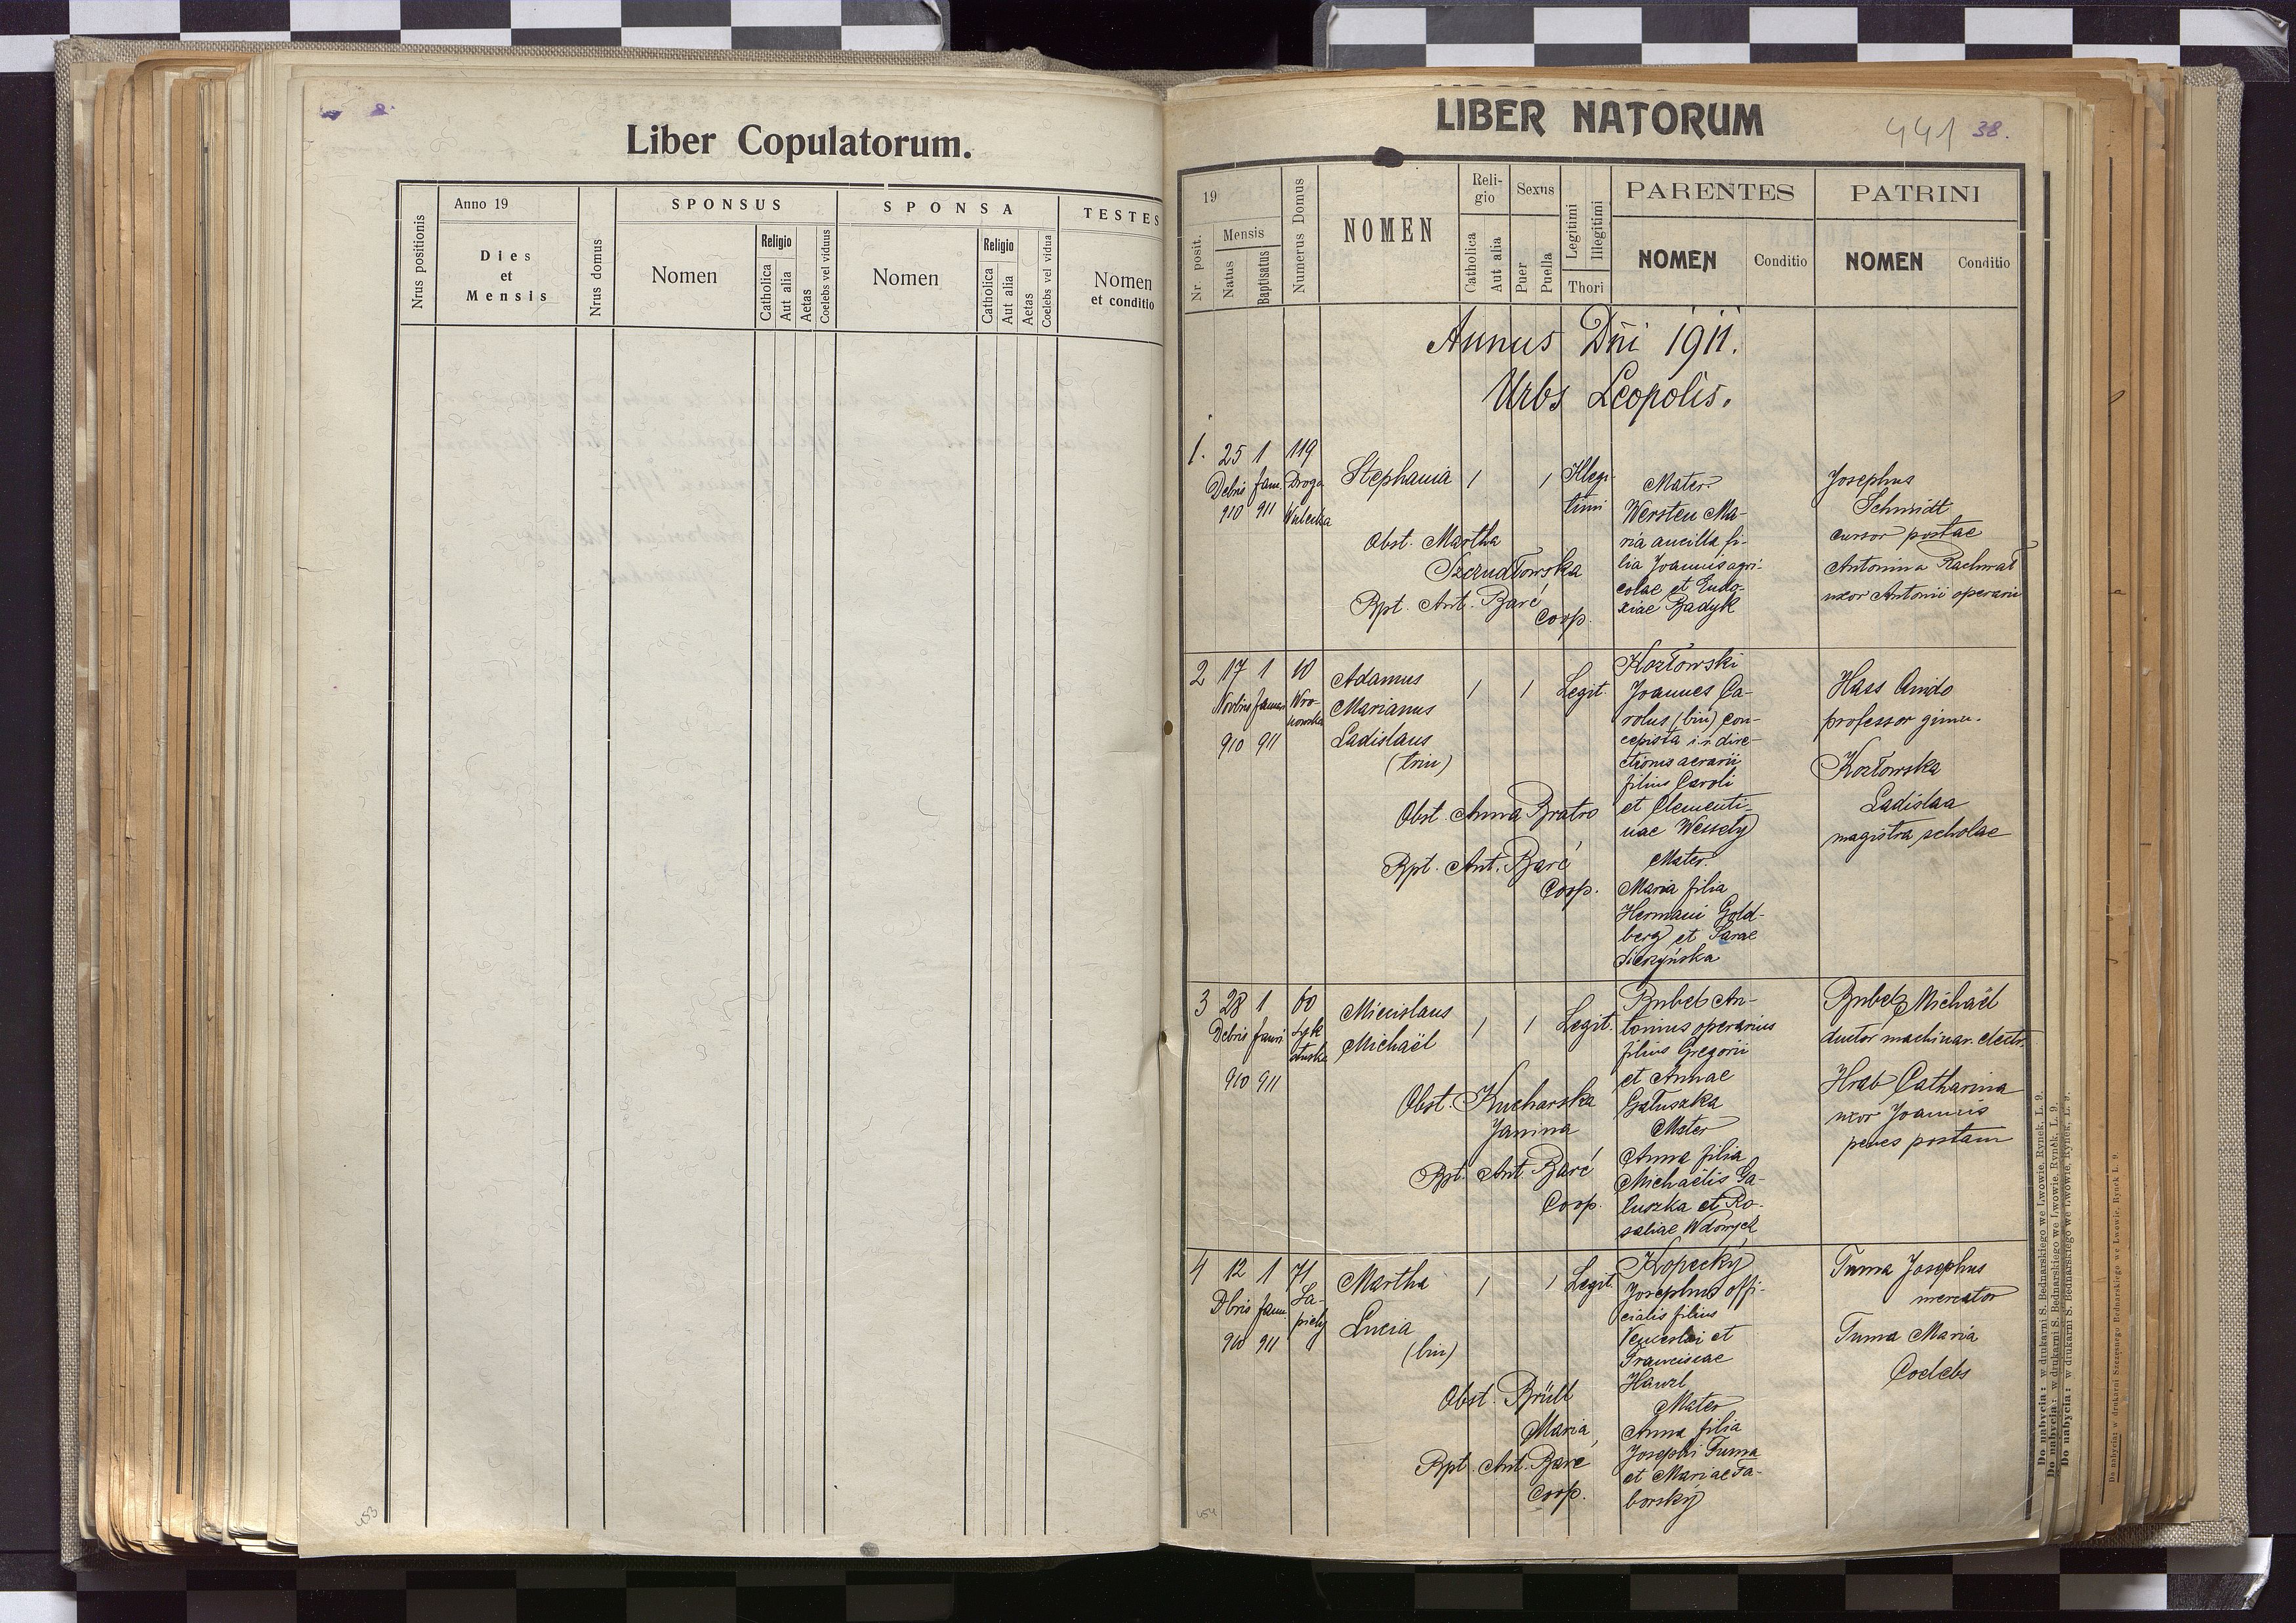 Liber Copulatorum.
Nrus positionis
Anno 19
Dies
et
Mensis
Nrus domus
SPONSUS
Nomen
Religio
Catholica
Aut alia
Aetas
Coelebs vel viduus
SPONSA
Nomen
Religio
Catholica
Aut alia
Aetas
Coelebs vel vidua
TESTES
Nomen
et conditio
453
LIBER NATORUM
441 38.
19
Nr. posit.
Mensis
Natus
Baptisatus
Numerus Domus
NOMEN
Reli-
gio
Catholica
Aut alia
Sexus
Puer
Puella
Legitimi
Illegitimi
Thori
PARENTES
NOMEN
Conditio
PATRINI
NOMEN
Conditio
Annus Dni 1911.
Urbs Leopolis.
1. 25 1 119
Debris Jan. Droga
910 911 Wulecka
Stephania 1 1 Illegi-
timi
Obst. Martha
Szczudłowska
Bpt. Ant. Baré
Coop.
Mater
Wersten Ma-
ria ancilla fi-
lia Joannis agri-
colae et Eudo-
xiae Badyk
Josephus
Schmidt
cursor postae
Antonina Rachwał
uxor Antonii operarii
2 17 1 10
Novbris Januar Wro-
nowska
910 911
Adamus
Marianus
Ladislaus
(trin)
1 1 Legit.
Obst. Anna Bratro
Bpt. Ant. Baré
Coop.
Kozłowski
Joannes Ca-
rolus (bin) con-
cepista i. r. dire-
ctionis aerarii
filius Caroli
et Clementi-
nae Wessely
Mater.
Maria filia
Hermani Gold-
berg et Sarae
Sieczyńska
Hass Guido
professor gimn.
Kozłowska
Ladislaa
magistra scholae
3 28 1 60
Debris Januri Syk
stuska
910 911
Miecislaus
Michaël
1 1 Legit.
Obst. Kucharska
Janina
Bpt. Ant. Baré
Coop.
Bubel An-
tonius operarius
filius Gregorii
et Annae
Gałuszka
Mater
Anna filia
Michaëlis Ga-
łuszka et Ro-
saliae Wdowych
Bubel Michaël
ductor machinar. electr.
Hrab Catharina
uxor Joannis
penes postam
4 12 1 71
Dbris Janu. Sa-
piehy
910 911
Martha
Lucia
(bin)
1 1 Legit.
Obst. Brüll
Maria
Bpt. Ant. Baré
Coop.
Kopecký
Josephus offi-
cialis filius
Venceslai et
Franciscae
Hanzl
Mater
Anna filia
Josephi Tuma
et Mariae Ta-
borský
Tuma Josephus
mercator
Tuma Maria
Coelebs
454
Do nabycia: w drukarni S. Bednarskiego we Lwowie, Rynek, L. 9.
Do nabycia: w drukarni S. Bednarskiego we Lwowie, Rynek, L. 9.
Do nabycia: w drukarni S. Bednarskiego we Lwowie, Rynek, L. 9.
Do nabycia: w drukarni Szczęsnego Bednarskiego we Lwowie, Rynek L. 9.